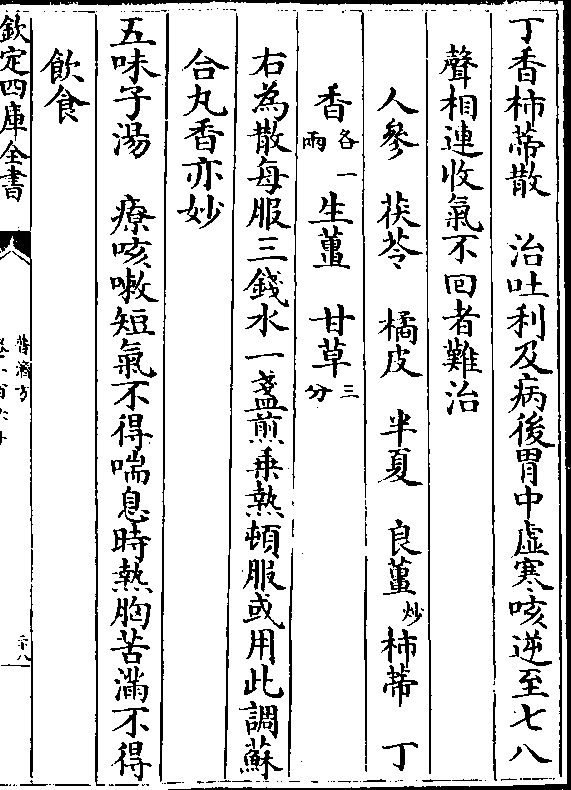 丁香柿蒂散　治吐利及病後胃中虛寒咳逆至七八
聲相連收氣不回者難治
人參　茯苓　橘皮　半夏　良薑炒　柿蒂　丁
香各一兩　生薑　甘草三分
右為散每服三錢水一盞煎乗熱頓服或用此調蘇
合丸香亦妙
五味子湯　療咳嗽短氣不得喘息時熱胸苦滿不得
飲食
欽定四庫全書
普濟方